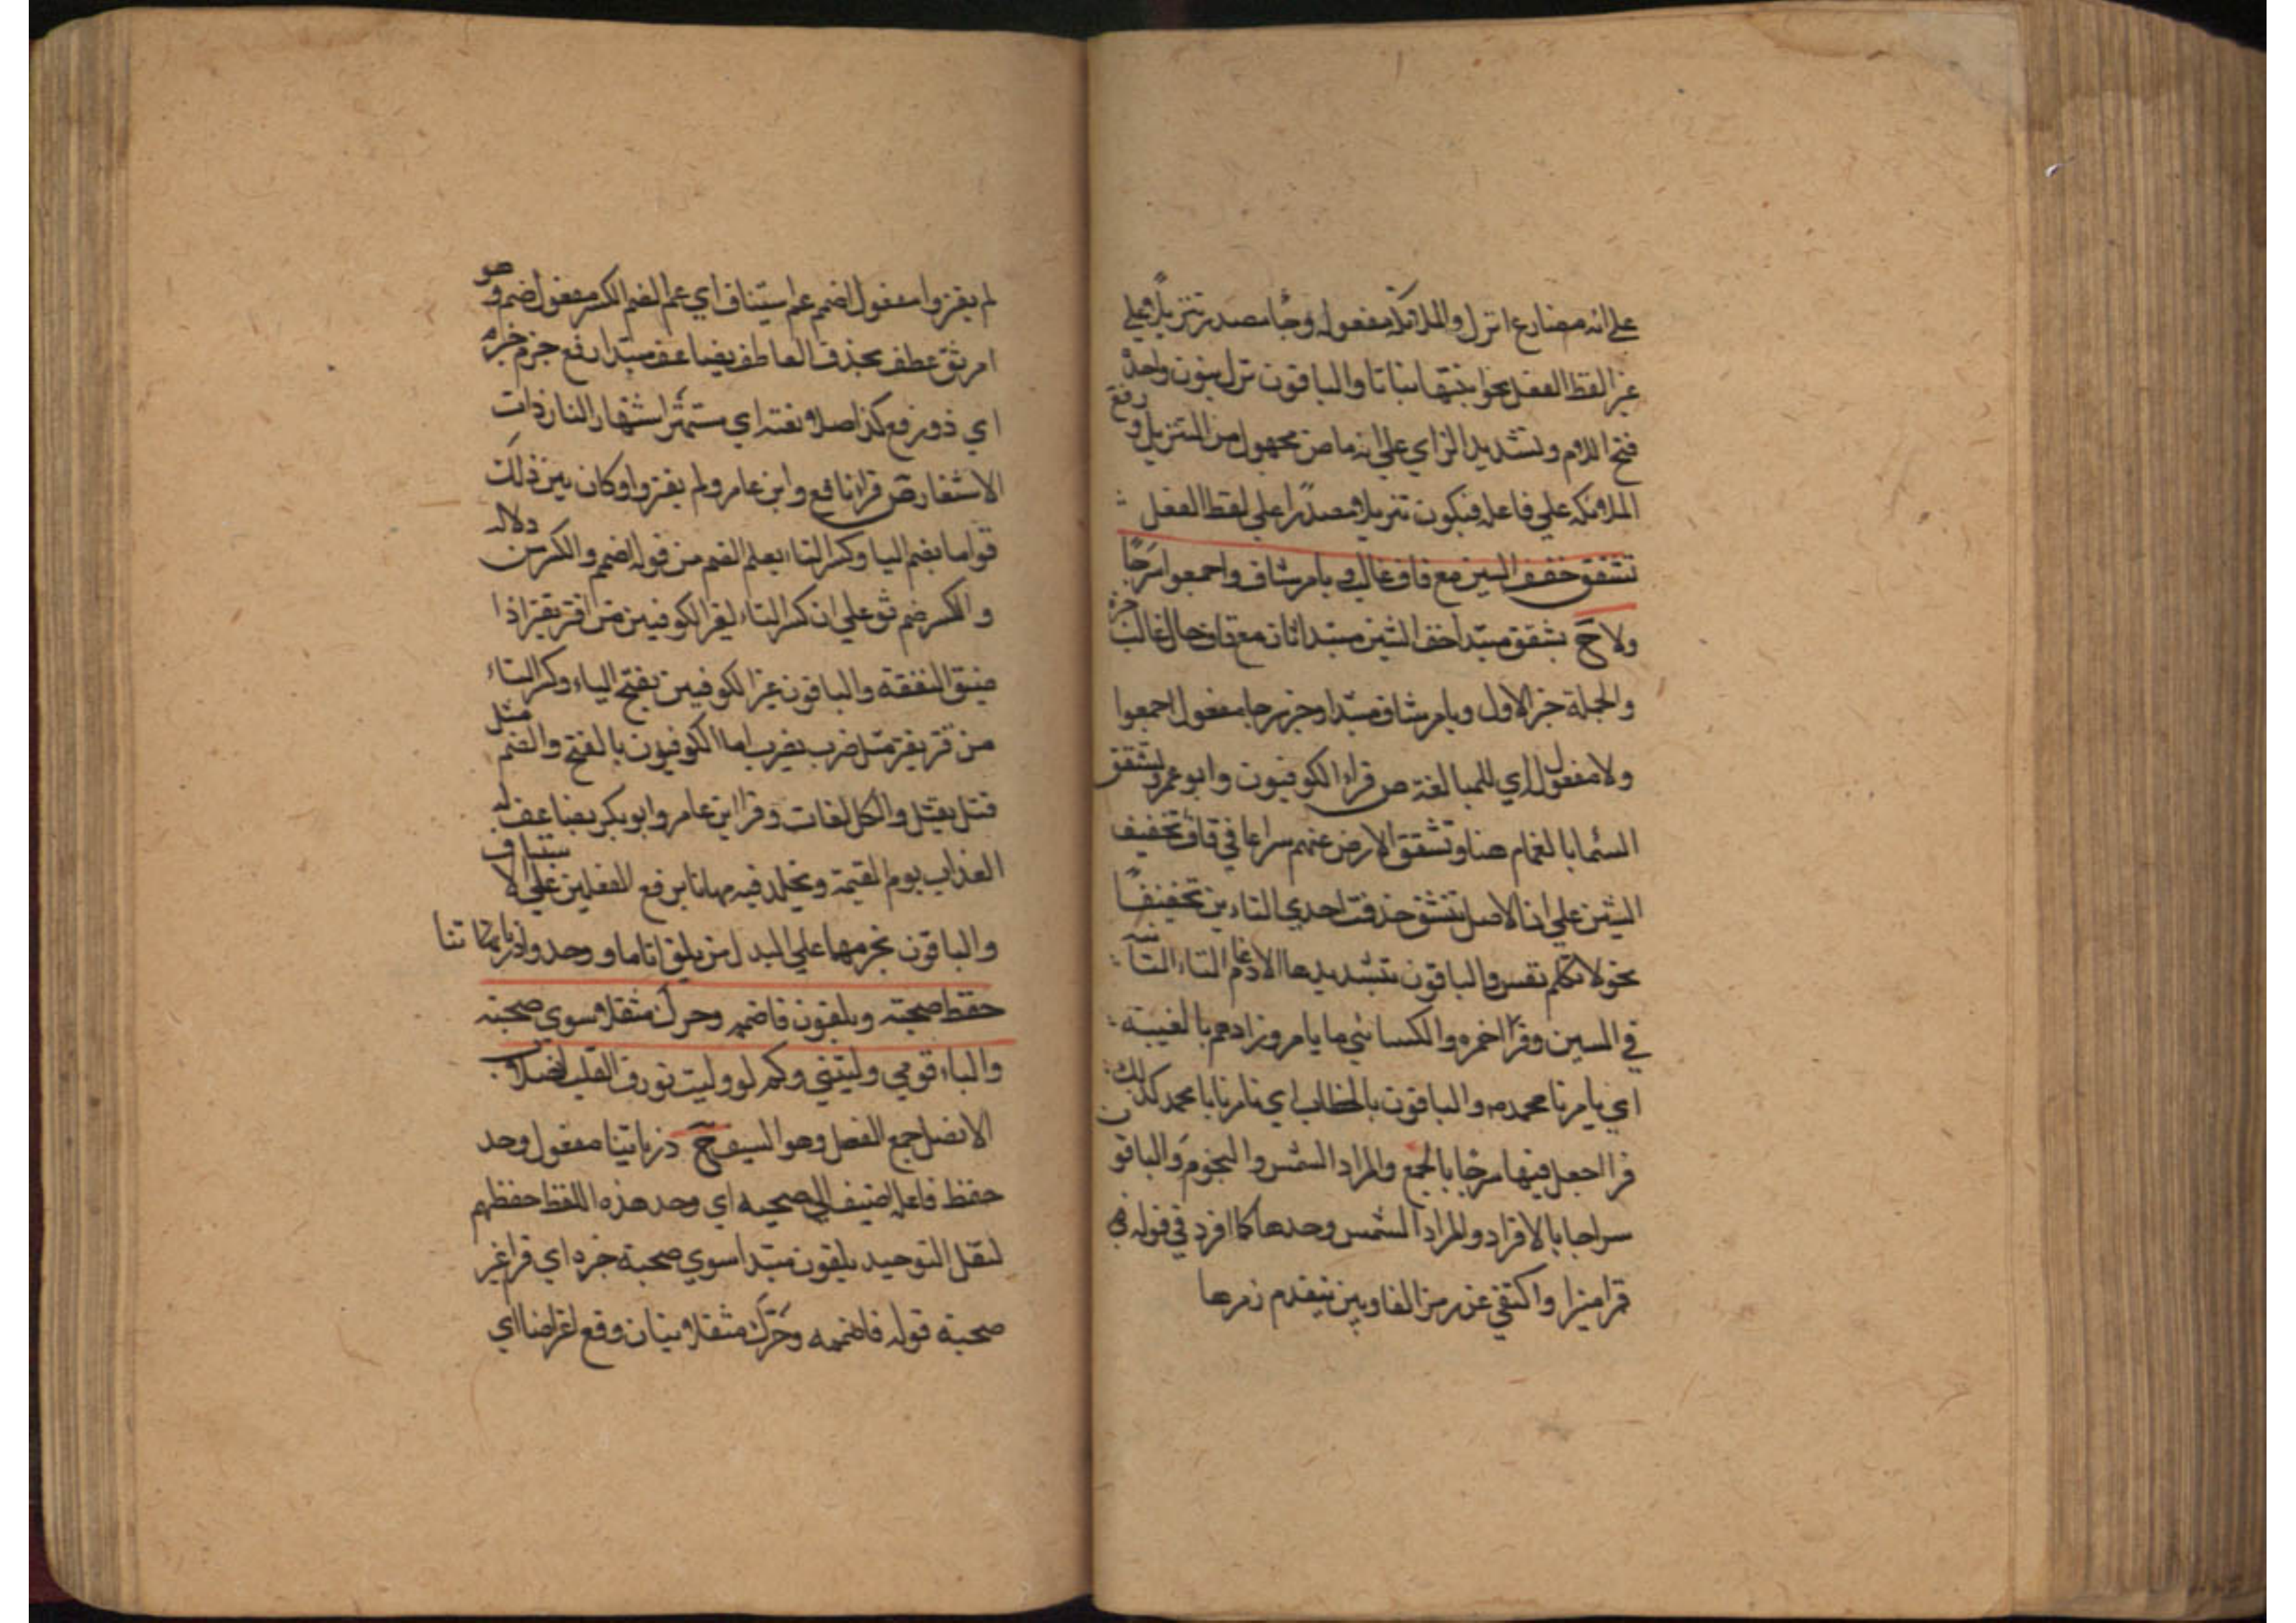 علي انه مضارع انزل والملائكة مفعوله وجا مصدر تنزيلا علي
غير لفظ الفعل نحو انبتها نباتا والباقون نزل بنون واحدة
فتح اللام وتشديد الزاي علي انه ماض مجهول من التنزيل ورفع
الملائكة علي فاعله فيكون تنزيلا مصدرا علي لفظ الفعل
تشقق خفف الشين مع قاف غالب ويامر شاف واجمعوا سرجا
ولا ح تشقق مبتدا خف الشين مبتدا ثان مع قاف حال غالب خبره
والجملة خبر الاول ويامر شاف مبتدا وخبر سرجا مفعول اجمعوا
ولا مفعول اي للمبالغة ص قرا الكوفيون وابو عمرو تشقق
السما بالغمام هنا وتشقق الارض عنهم سراعا في قاف تخفيف
الشين علي ان الاصل تتشقق حذفت احدي التاءين تخفيفا
نحو لا تكلم نفس والباقون بتشديدها لادغام التاء الثانية
في الشين وقرا حمزه والكسائي ما يامر وزادهم بالغيبة
اي يامرنا محمد والباقون بالخطاب اي تامرنا يا محمد كذلك
قرا جعل فيها سرجا بالجمع والمراد الشمس والنجوم والباقون
سراجا بالافراد والمراد الشمس وحدها كما افرد في قوله
قمرا منيرا واكتفي عن رمز الفاوين بتقدم رمزها
لم يقتروا مفعول اضمم عم استيناف اي عم الضم الكسر مفعول ضم وهو
امر ثق عطف بحذف العاطف يضاعف مبتدا رفع جزم خبره
اي ذو رفع كذا صلا نعته اي مشتهر اشتهار النار ذات
الاشتعار ص قرا نافع وابن عامر ولم يقتروا وكان بين ذلك
قواما بضم اليا وكسر التاء يعلم الضم من قوله اضمم والكسر من دلالة
والكسر ضم ثق علي ان كسر التاء لغير الكوفيين من اقتر يقتر اذا
ضيق النفقة والباقون غير الكوفيين بفتح الياء وكسر التاء
من قتر يقتر مثل ضرب يضرب اما الكوفيون بالفتح والضم مثل
قتل يقتل والكل لغات وقرا ابن عامر وابو بكر يضاعف له
العذاب يوم القيمة ويخلد فيه مهانا برفع الفعلين علي الاستيناف
والباقون بجزمهما علي البدل من يلق اثاما ووحد وذرياتنا
حفظ صحبة ويلقون فاضممه وحرك مثقلا سوي صحبة
والباء قومي وليتني وكم لو وليت تورث القلب انصلا
الانصل جمع النصل وهو السيف ح ذرياتنا مفعول وحد
حفظ فاعله اضيف الي صحبة اي وحد هذه اللفظ حفظهم
لنقل التوحيد يلقون مبتدا سوي صحبة خبره اي قرا غير
صحبة قوله فاضممه وحرك مثقلا بيان وقع اعتراضا اي